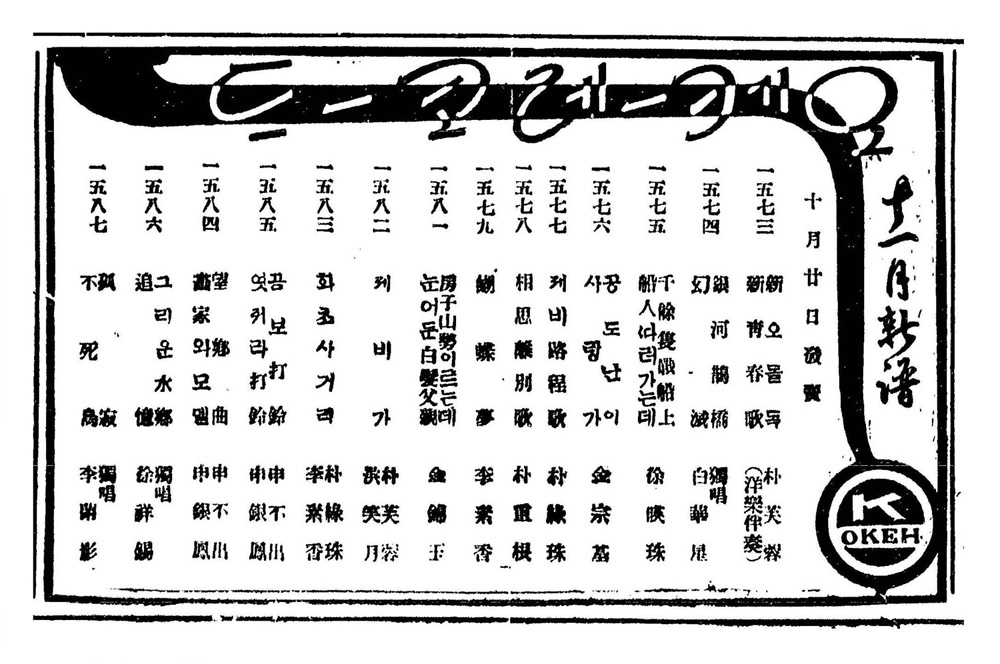 오케ー레코ー드
十一月新譜
OKEH
十月廿日發賣
一五七三 新오돌독 朴芙蓉
新靑春歌 (洋樂伴奏)
一五七四 銀河鵲橋 獨唱
幻滅 白華星
一五七五 千餘隻戰船上
船人따러가는데 徐暎珠
一五七六 공도난이
사랑가 金宗基
一五七七 제비路程歌 朴綠珠
一五七八 相思離別歌 朴重根
一五七九 蝴蝶夢 李素香
一五八一 房子山勢이르는데
눈어둔白髮父親 金錦玉
一五八二 제비가 朴芙蓉
洪笑月
一五八三 화초사거리 朴綠珠
李素香
一五八五 곰보打鈴 申不出
엿퀴라打鈴 申銀鳳
一五八四 望鄕曲 申不出
畵家와모델 申銀鳳
一五八六 그리운水鄕 獨唱
追憶 徐祥錫
一五八七 孤寂 獨唱
不死鳥 李蘭影